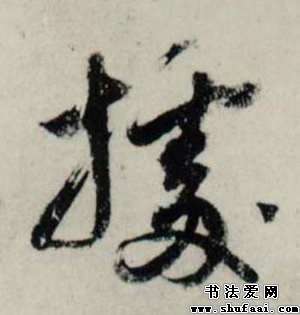 據
书法爱网
www.shufaai.com